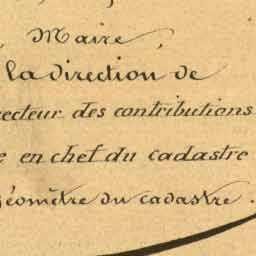 , Maire,
la direction de
recteur des contributions
e en chef du cadastre
Géomètre du cadastre.